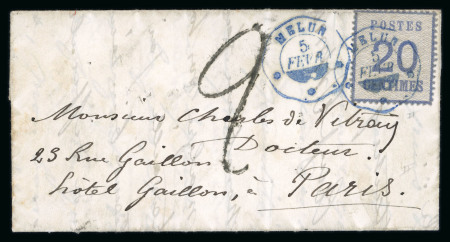 MELUN
5
FEVR
MELUN
5
FEVR
POSTES
20
CENTIMES
2
Monsieur Charles de Vitray
Docteur.
23 Rue Gaillon
hôtel Gaillon, à Paris.